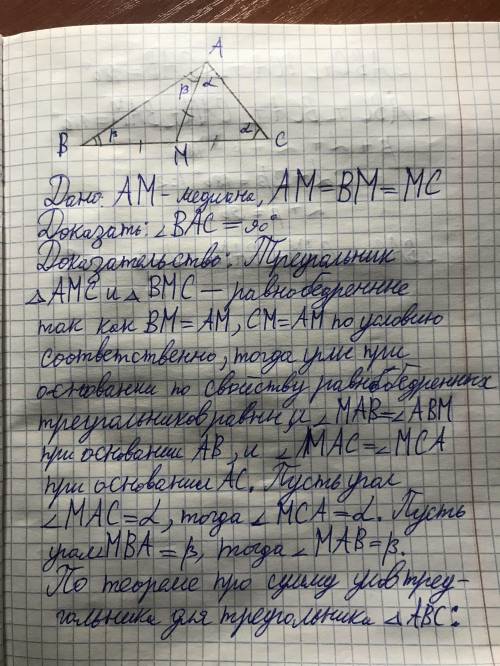 A
β α
B β α C
M
Дано: AM - медиана, AM = BM = MC
Доказать: ∠BAC = 90°
Доказательство: Треугольник
△AMC и △BMC — равнобедренные
так как BM = AM, CM = AM по условию
соответственно, тогда углы при
основании по свойству равнобедренных
треугольников равны, и ∠MAB = ∠ABM
при основании AB, и ∠MAC = ∠MCA
при основании AC. Пусть угол
∠MAC = α, тогда ∠MCA = α. Пусть
угол MBA = β, тогда ∠MAB = β.
По теореме про сумму углов треу-
гольника для треугольника △ABC: